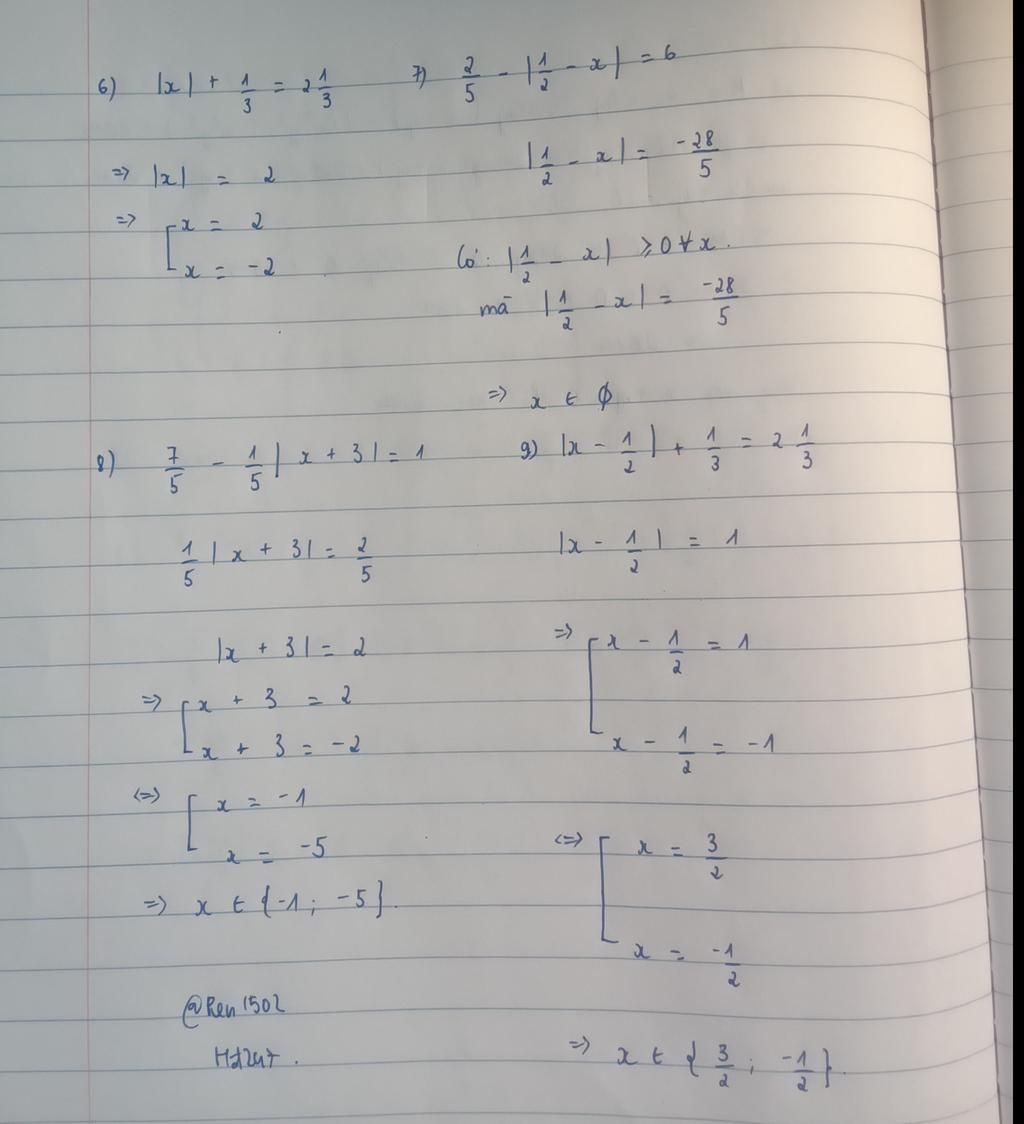 6) |x| + 1/3 = 2 1/3
=> |x| = 2
=> [ x = 2
x = -2
7) 2/5 - |1/2 - x| = 6
|1/2 - x| = -28/5
Có: |1/2 - x| ⩾ 0 ∀ x.
mã |1/2 - x| = -28/5
=> x ∈ ϕ
8) 7/5 - 1/5 | x + 3| = 1
1/5 | x + 3| = 2/5
|x + 3| = 2
=> [ x + 3 = 2
x + 3 = -2
<=> [ x = -1
x = -5
=> x ∈ {-1; -5}.
@Ren1502
9) |x - 1/2| + 1/3 = 2 1/3
|x - 1/2| = 1
=> [ x - 1/2 = 1
x - 1/2 = -1
<=> [ x = 3/2
x = -1/2
=> x ∈ {3/2; -1/2}.